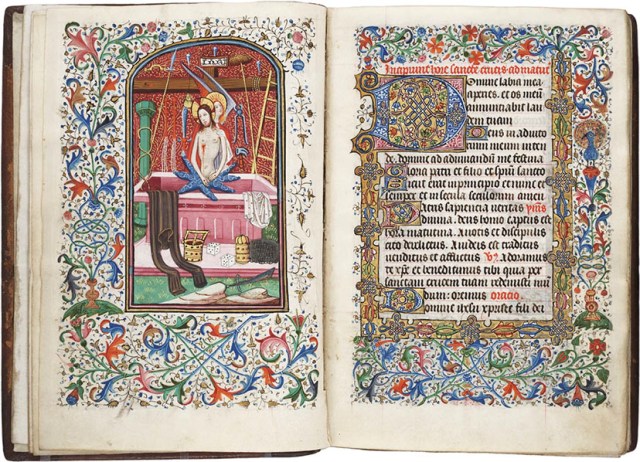 INRI
Incipiunt hore sancte crucis ad matut
Domine labia mea
aperies. et os meū
annunciabit lau
dem tuam
Deus in adiuto
rium meum inten
de. domine ad adiuuandū me festina
Gloria patri et filio et spūi sancto
Sicut erat in principio et nunc et
semper et in secula seculorum amen
Patris sapiencia veritas yms
diuina. deus homo captus est
hora matutina. A notis et discipulis
cito derelictus. A iudeis est traditus
venditus et afflictus V Adoramus
te xpē et benedicimus tibi quia per
sanctam crucem tuam redemisti mū
dum. oremus oracio.
Domine ihesu xpriste fili dei